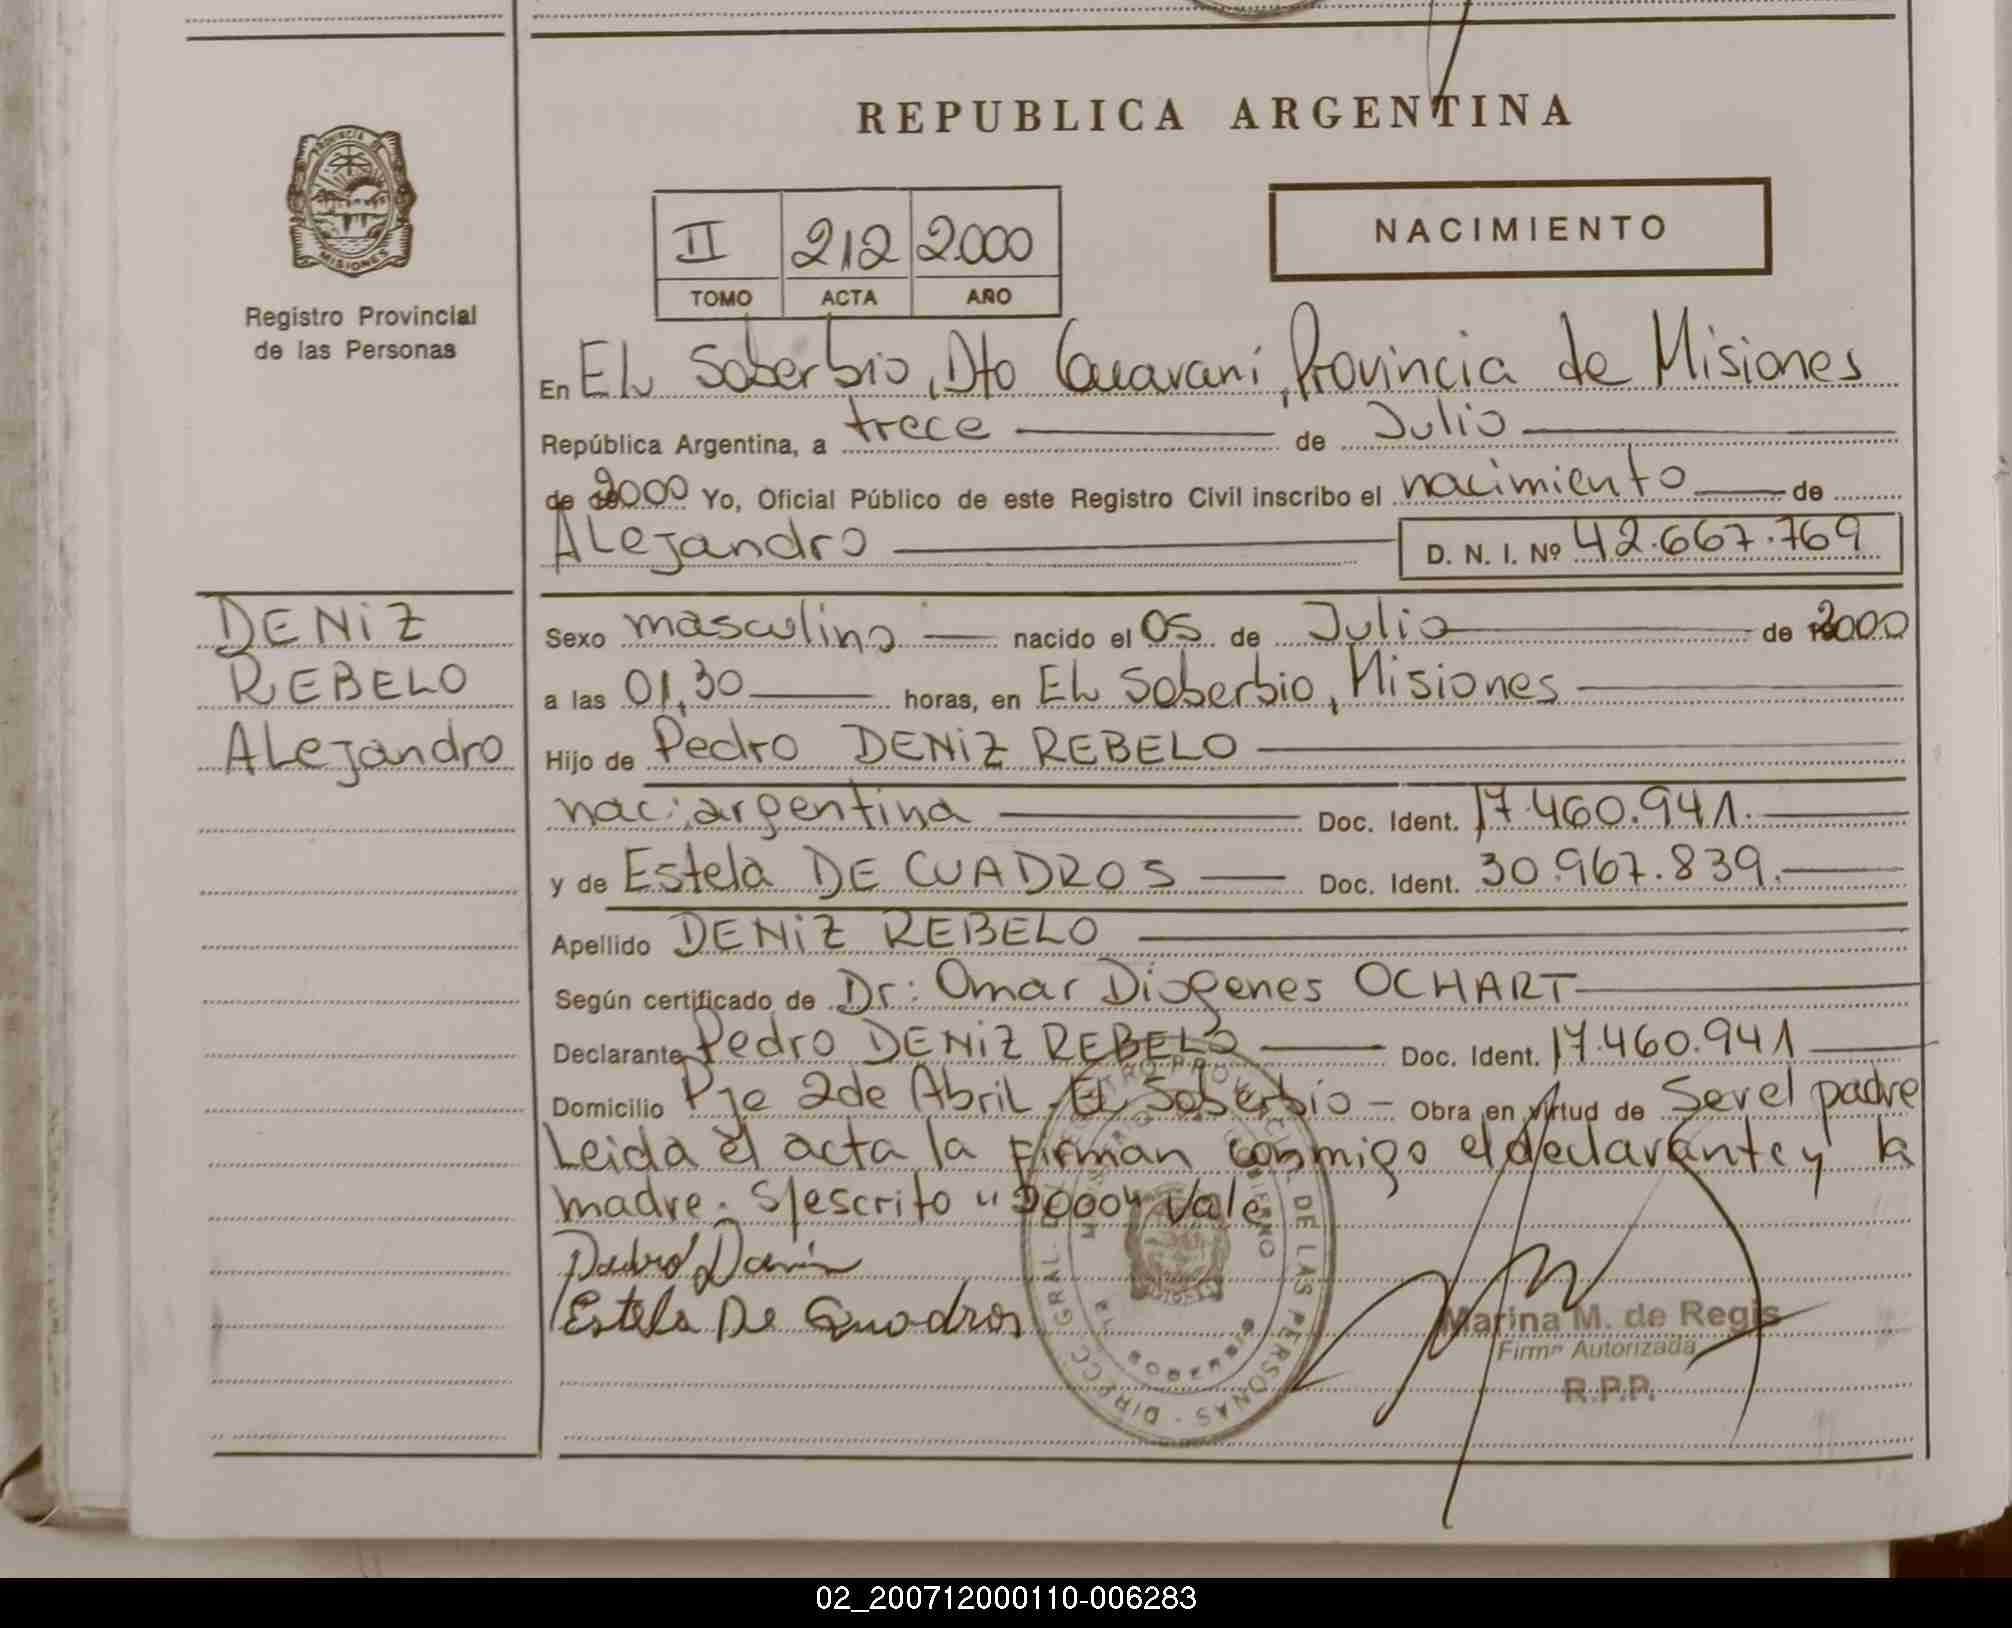 REPUBLICA ARGENTINA
PROVINCIA DE
MISIONES
Registro Provincial
de las Personas
II 212 2000
TOMO ACTA AÑO
NACIMIENTO
En EL Soberbio, Dto Guaraní, Provincia de Misiones
República Argentina, a trece de Julio
de 2000 Yo, Oficial Público de este Registro Civil inscribo el nacimiento de
Alejandro
D. N. I. Nº 42.667.769
DENIZ
REBELO
Alejandro
Sexo masculino nacido el 05 de Julio de 2000
a las 01,30 horas, en EL Soberbio, Misiones
Hijo de Pedro DENIZ REBELO
nac: argentina Doc. Ident. 17.460.941.
y de Estela DE CUADROS Doc. Ident. 30.967.839.
Apellido DENIZ REBELO
Según certificado de Dr: Omar Diogenes OCHART
Declarante Pedro DENIZ REBELO Doc. Ident. 17.460.941
Domicilio Pje 2 de Abril - EL Soberbio - Obra en virtud de Ser el padre
Leida el acta la firman conmigo el declarante y la
madre. S/escrito "2000" Vale
Estela De Quadros
DIRECC. GRAL. DE LAS PERSONAS
Marina M. de Regis
Firma Autorizada
R.P.P.
02_200712000110-006283